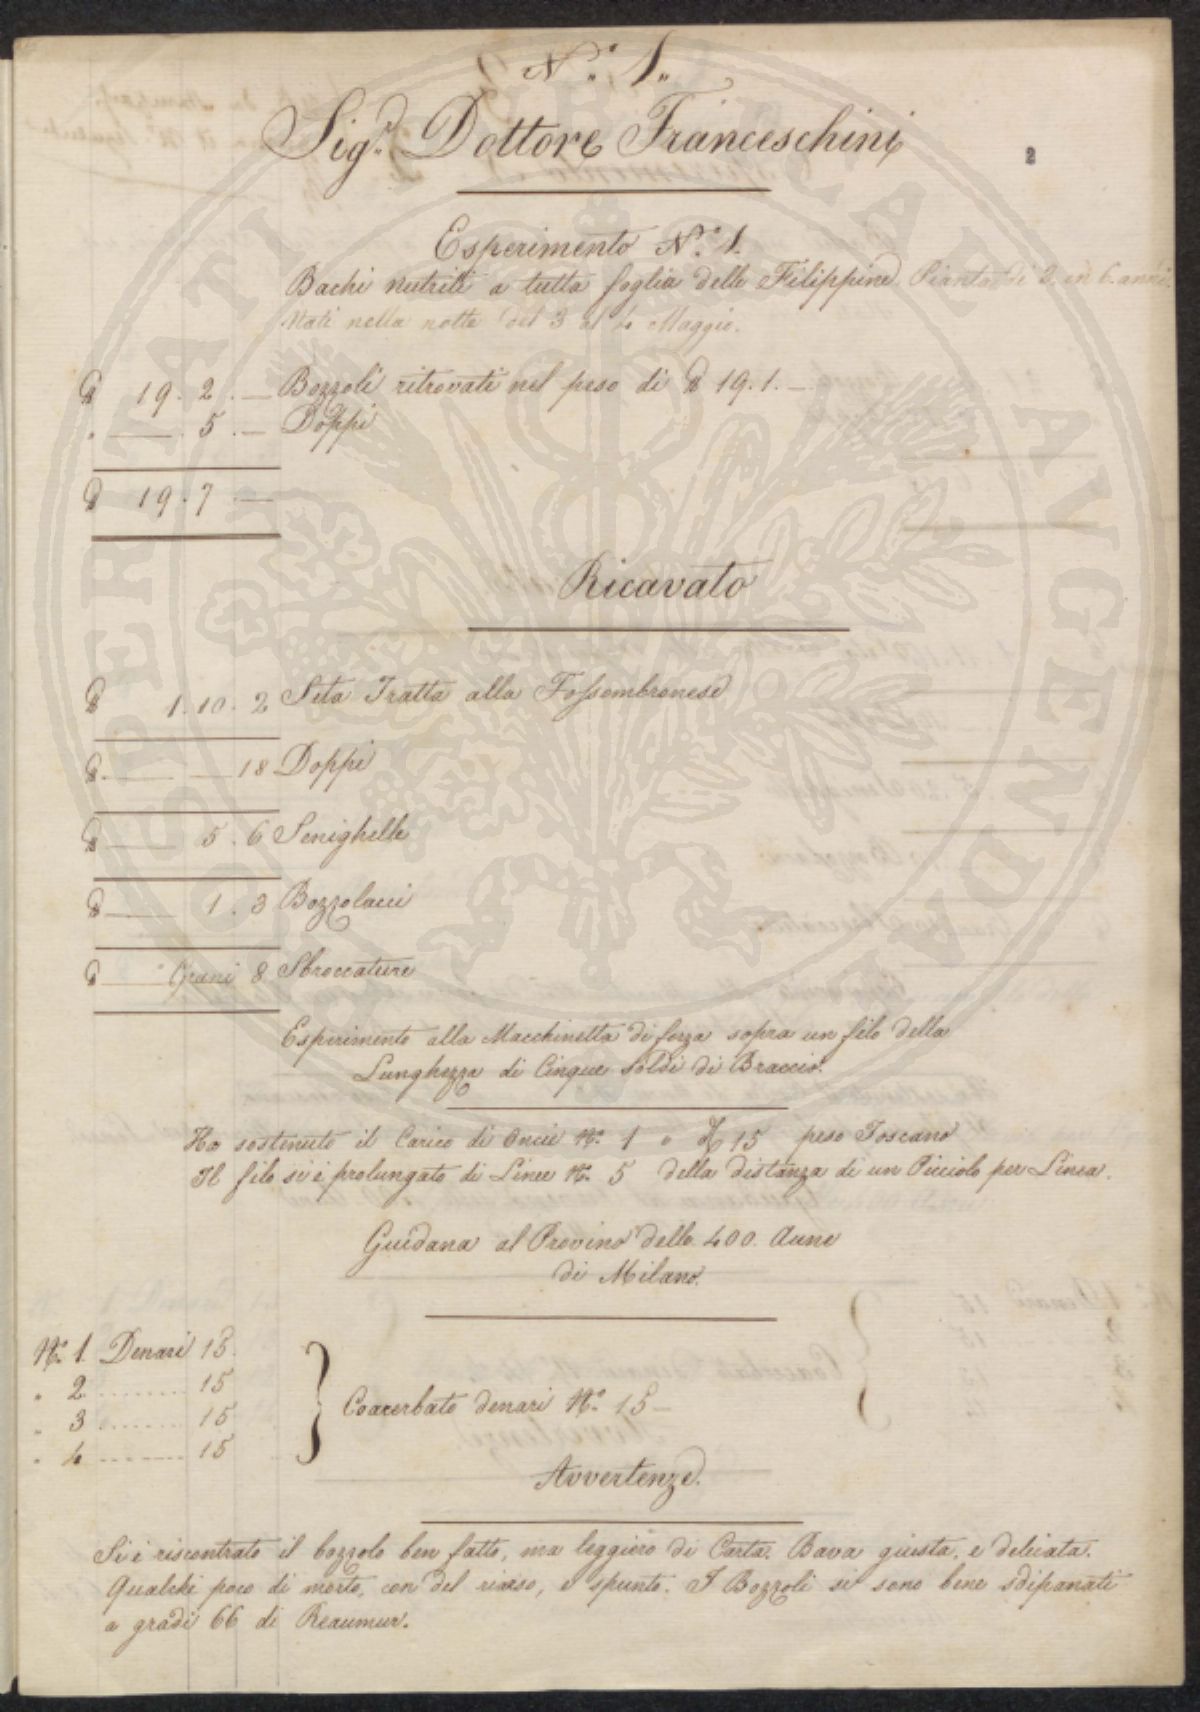 N.º 1.
Sig.r Dottore Franceschini
2
Esperimento N.º 1.
Bachi nutriti a tutta foglia delle Filippine. Pianta di 2. in 6. anni.
Nati nella notte del 3 al 4 Maggio.
℔ 19. 2. — Bozzoli ritrovati nel peso di ℔ 19. 1. —
" — 5. — Doppi
℔ 19. 7 —
Ricavato
℔ 1. 10. 2 Seta Tratta alla Fossombronese
℔ — — 18 Doppi
℔ — 5. 6 Senighelle
℔ — 1. 3 Bozzolacci
℔ — " Grani 8 Sbroccature
Esperimento alla Macchinetta di forza sopra un filo della
Lunghezza di Cinque Soldi di Braccio.
Ha sostenuto il Carico di Oncie N.º 1 e 15 peso Toscano
Il filo si è prolungato di Linee N.º 5 della distanza di un Picciolo per Linea.
Guidana al Provino delle 400. Aune
di Milano.
N.º 1. Denari 15.
" 2 ........ 15
" 3 ........ 15
" 4 ........ 15
Coacerbato denari N.º 15 —
Avvertenze.
Si è riscontrato il bozzolo ben fatto, ma leggiero di Carta. Bava giusta, e delicata.
Qualche poco di morto, con del e spunto. I Bozzoli si sono bene sdipanati
a gradi 66 di Reaumur.
PROSPERITATI PUBLICAE AUGENDAE